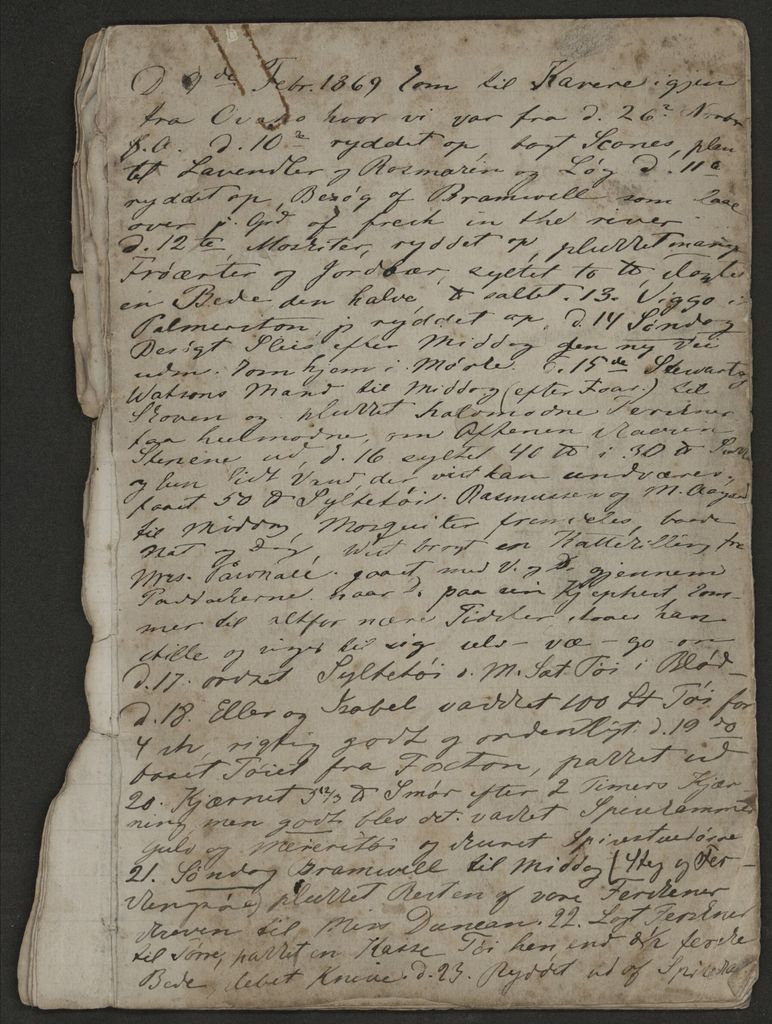 D. 9de Febr. 1869 kom til Karere igjen
fra Ovaho hvor vi var fra d. 26
f. A. d. 10 ryddet op bagt Scones, plan
tet Lavendler og Rosmarin og Løg d. 11
ryddet op, Besøg af Bramwell som laae
over p. Grd af fresh in the river.
d. 12te Moskiter, ryddet op, plukket mange
Frøærter og Jordbær, syltet to ℔
en Bede den halve ℔ saltet. 13. Viggo i
Palmerston, j ryddet op, d. 14 Søndag
Besøgt efter Middag en ny Vei
uden. Kom hjem i Mørke. d. 15de Stewart og
Watsons Mand til Middag (efter Faar.) til
Skoven og plukket halvmodne Ferskner
paa helmodne, om Aftenen skaaren
Stenene ud, d. 16 syltet 40 ℔ i 30 ℔
og kun lidt Vand, der vist kan undværes,
faaet 50 ℔ Syltetøi. Rasmussen og M.
til Middag, Mosquiter fremdeles, baade
Nat og Dag. Wist bragt en Kattekilling fra
Mrs. gaaet med V. og D. gjennem
Paddockerne. naar D. paa sin Kjephest kom-
mer til altfor nære Tidsler staaer han
stille og siger til sig selv - væ - go - on
d. 17. ordnet Syltetøi o. M. Sat Tøi i Blød -
d. 18. Ellen og Isabel vasket 100 St Tøi for
4 sh, rigtig godt og ordentligt. d. 19
baset Tøiet fra Foxton, pakket ud
20. Kjærnet 5 ℔ Smør efter 2 Timers Kjær-
ning, men godt blev det. vasket Spisekammer
gulv og og skuret
21. Søndag Bramwell til Middag (Steg og Fer-
plukket Resten af vore Ferskener
skreven til Miss Duncan. 22. Lagt Ferskner
til Tørre, pakket en Kasse Tøi hen, end ferske
Bede, Knive. d. 23. Ryddet ud af